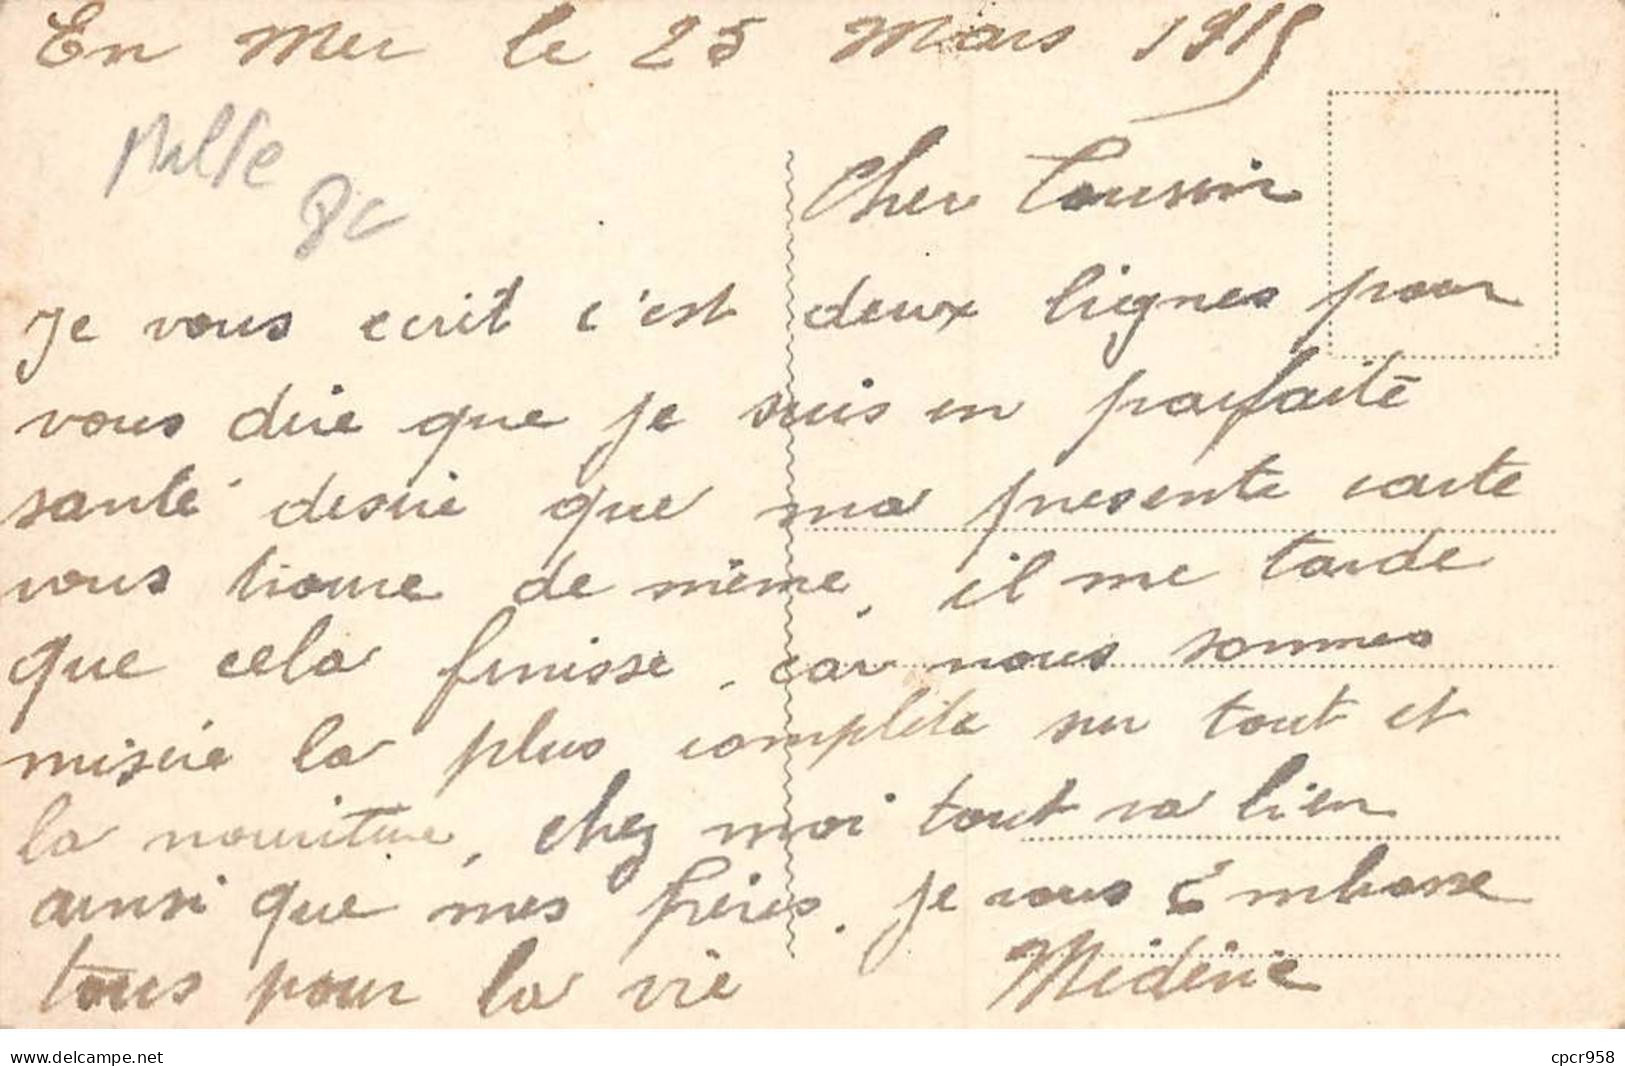 En Mer le 25 Mars 1915
Malte
Cher Cousin
Je vous ecrit c'est deux lignes pour
vous dire que je suis en parfaite
santé desire que ma presente carte
vous trouve de même, il me tarde
que cela finisse, car nous sommes
misere la plus complète sur tout et
la nouriture, chez moi tout va bien
ainsi que mes frères. Je vous Embrasse
tous pour la vie Méderie
www.delcampe.net
cpcr958